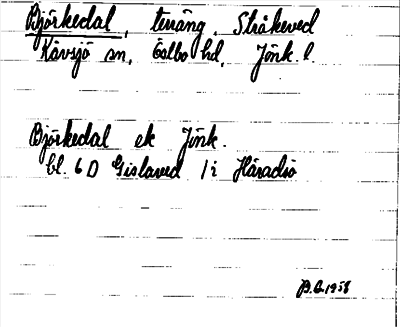 Björkedal, terräng, Stråkeved
Kävsjö sn, Östbo hd, Jönk. l.
Björkedal ek Jönk.
bl. 6 D Gislaved 1 i Häradsö
B.G. 1958